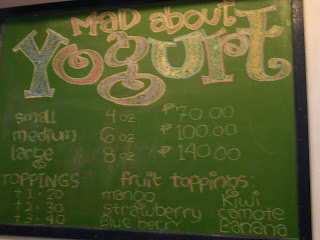 mad about
Yogurt
small 4 oz ₱70.00
medium 6 oz ₱100.00
large 8 oz ₱140.00
TOPPINGS fruit toppings:
+1 - 20 mango Kiwi
+2 - 30 Strawberry camote
+3 - 40 Blue berry Banana